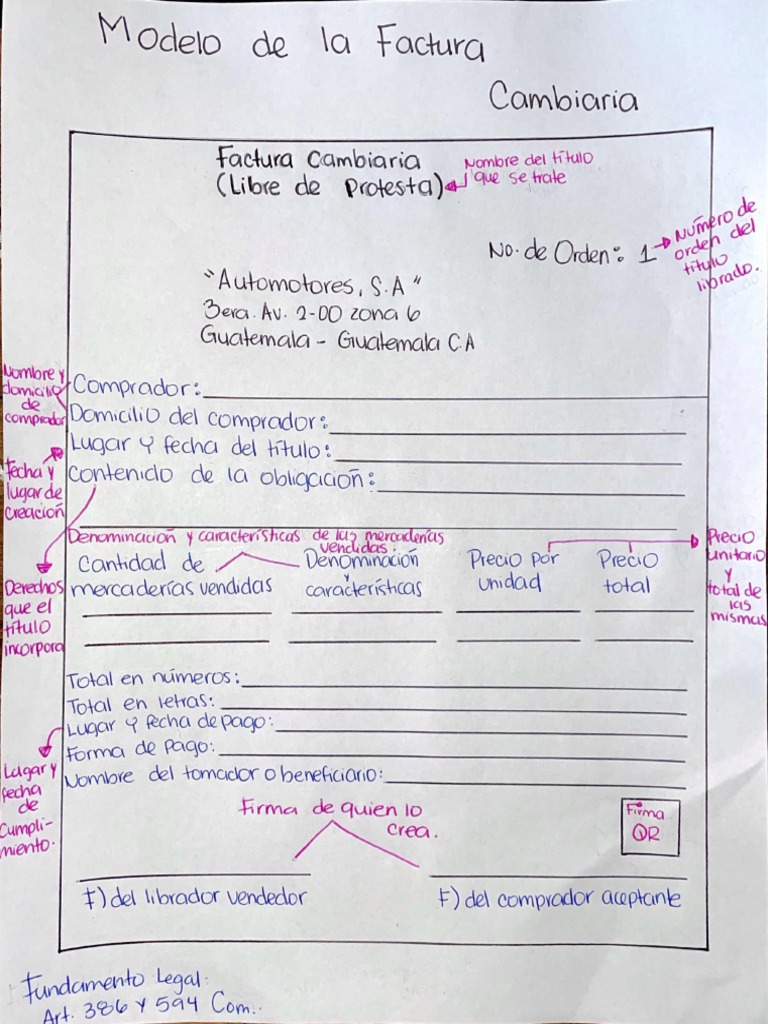 Modelo de la Factura
Cambiaria
Factura Cambiaria
(Libre de Protesta)
Nombre del título
que se trate
No. de Orden: 1
Número de
orden del
título
librado.
"Automotores, S.A"
3era. Av. 2-00 zona 6
Guatemala - Guatemala C.A
Nombre y
domicilio
de
comprador
Comprador:
Domicilio del comprador:
Lugar y fecha del título:
Contenido de la obligación:
Fecha y
lugar de
creación
Denominación y características de las mercaderías
vendidas
Cantidad de
mercaderías vendidas
Denominación
y
características
Precio por
unidad
Precio
total
Precio
unitario
y
total de
las
mismas
Derechos
que el
título
incorpora
Total en números:
Total en letras:
Lugar y fecha de pago:
Forma de pago:
Nombre del tomador o beneficiario:
Lugar y
fecha
de
Cumpli-
miento.
Firma de quien lo
crea.
Firma
QR
F) del librador vendedor
F) del comprador aceptante
Fundamento Legal:
Art. 386 y 594 Com.